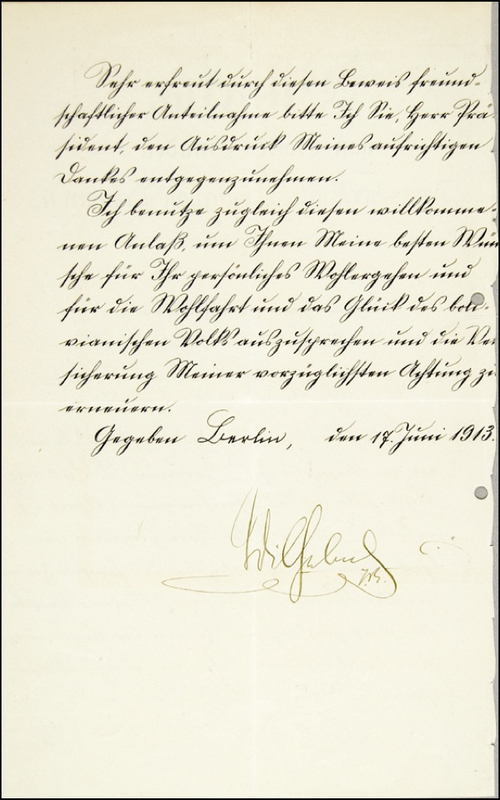 Sehr erfreut durch diesen Beweis freund-
schaftlicher Anteilnahme bitte Ich Sie, Herr Prä-
sident, den Ausdruck Meines aufrichtigen
Dankes entgegenzunehmen.
Ich benutze zugleich diesen willkomme-
nen Anlaß, um Ihnen Meine besten Wün
sche für Ihr persönliches Wohlergehen und
für die Wohlfahrt und das Glück des boli-
vianischen Volks auszusprechen und die Ver
sicherung Meiner vorzüglichsten Achtung zu
erneuern.
Gegeben Berlin, den 17. Juni 1913.
Wilhelm